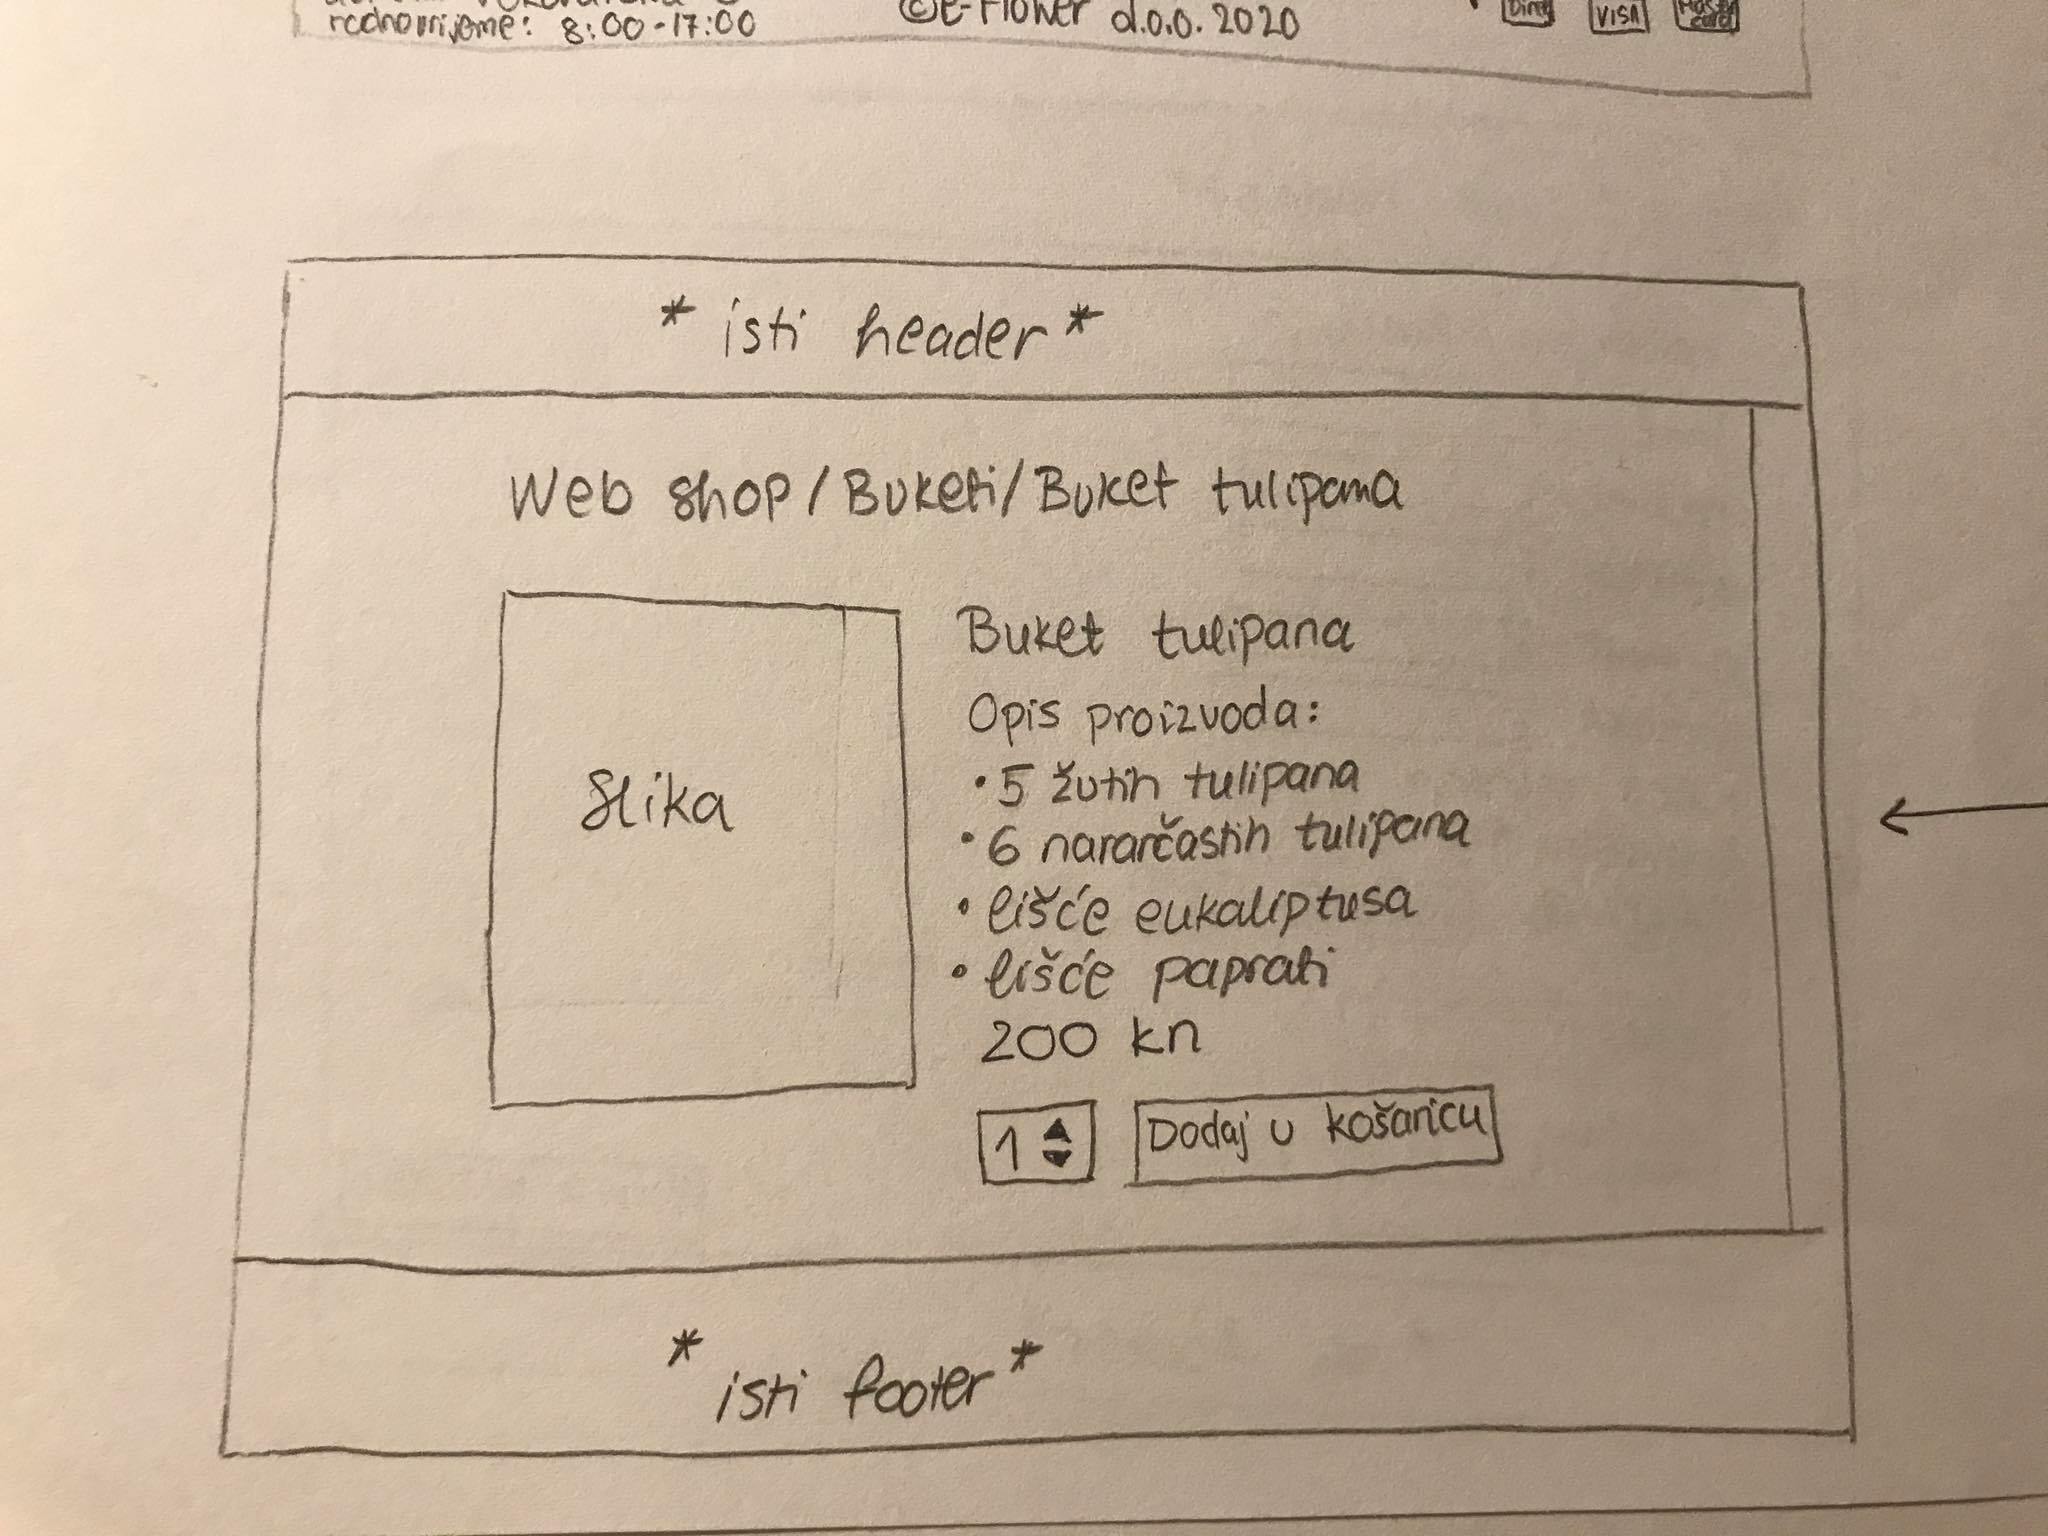 radno vrijeme: 8:00-17:00
©e-Flower d.o.o. 2020
VISA
Master card
*isti header*
Web shop/Buketi/Buket tulipana
Slika
Buket tulipana
Opis proizvoda:
•5 žutih tulipana
•6 narančastih tulipana
•lišće eukaliptusa
•lišće paprati
200 kn
1
Dodaj u košaricu
*isti footer*